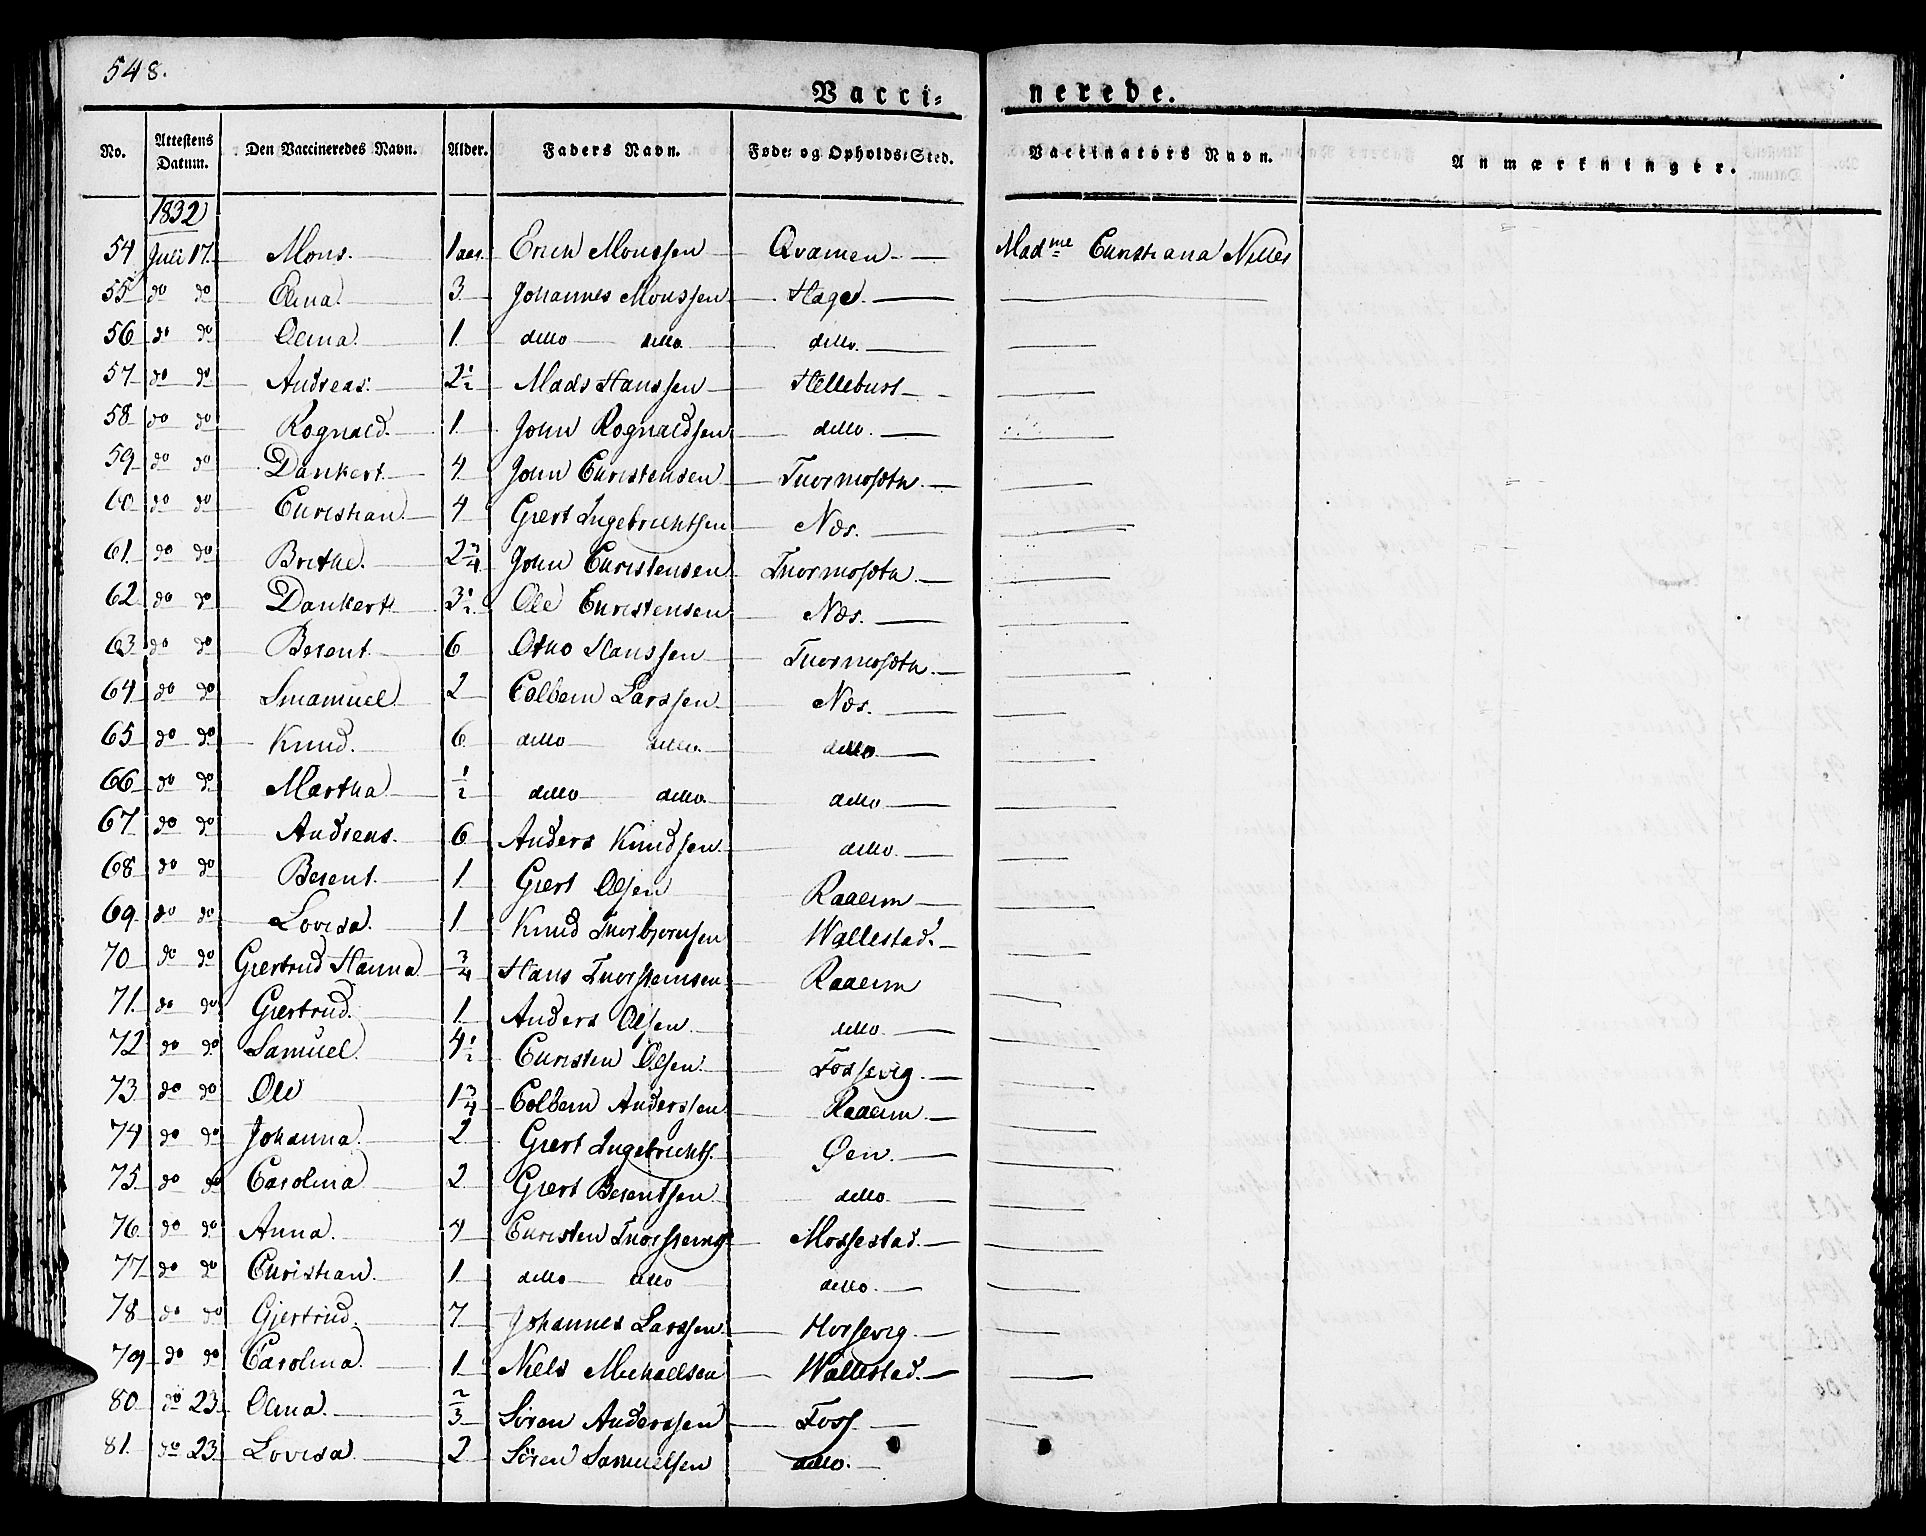 548.
Vacci- nerede.
No. Attestens Datum. Den Vaccineredes Navn. Alder. Faders Navn. Føde- og Opholds-Sted. Vaccinators Navn. Anmærkninger.
1832
54 Juli 17. Mons. 1 aar. Erich Monssen Qvamen Madme Christiana Nilles
55 do do Elina 3 Johannes Monssen Hage
56 do do Olina 1 ditto ditto ditto
57 do do Andreas 2½ Mads Hanssen Hellebust
58 do do Rognald 1 John Rognaldsen ditto
59 do do Dankert 4 John Christensen Thormosæth
60 do do Christian 4 Giert Ingebrechtsen Næs.
61. do do Brithe. 2¾ John Christensen Thormosæth
62 do do Dankert 3½ Ole Christensen Næs.
63 do do Berent 6 Otho Hanssen Thormosæth
64 do do Smamuel 2 Colbein Larssen Næs.
65 do do Knud. 6 ditto ditto. ditto
66 do do Martha ½ ditto ditto. ditto
67 do do Andreas. 6 Anders Knudsen ditto
68 do do Berent 1 Giert Olsen Raaeim
69. do do Lovisa. 1 Knud Thorbjørnsen Wallestad.
70 do do Giertrud Hanna ¾ Hans Thorsteinsen Raaeim
71. do do Giertrud. 1. Anders Olsen ditto.
72 do do Samuel 4½ Christen Olsen Fossevig.
73 do do Ole 1¾ Colbein Anderssen Raaeim
74 do do Johanna 2 Giert Ingebrechts. Øen.
75 do do Carolina 2 Giert Berentsen ditto
76 do do Anna. 4 Christen Thorsteins Mossestad.
77 do do Christian 1 ditto ditto ditto.
78 do do Gjertrud. 7 Johannes Larssen Horsevig.
79 do do Carolina 1 Niels Michaelsen Wallestad.
80 do 23. Olina. ⅔ Søren Anderssen Foss.
81. do 23. Lovisa 2 Søren Samuelsen ditto.